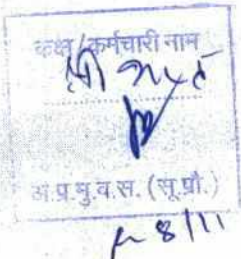 कक्ष / कर्मचारी नाम
श्री
अ.प्र.मु.व.स. (सू.प्रौ.)
8/11